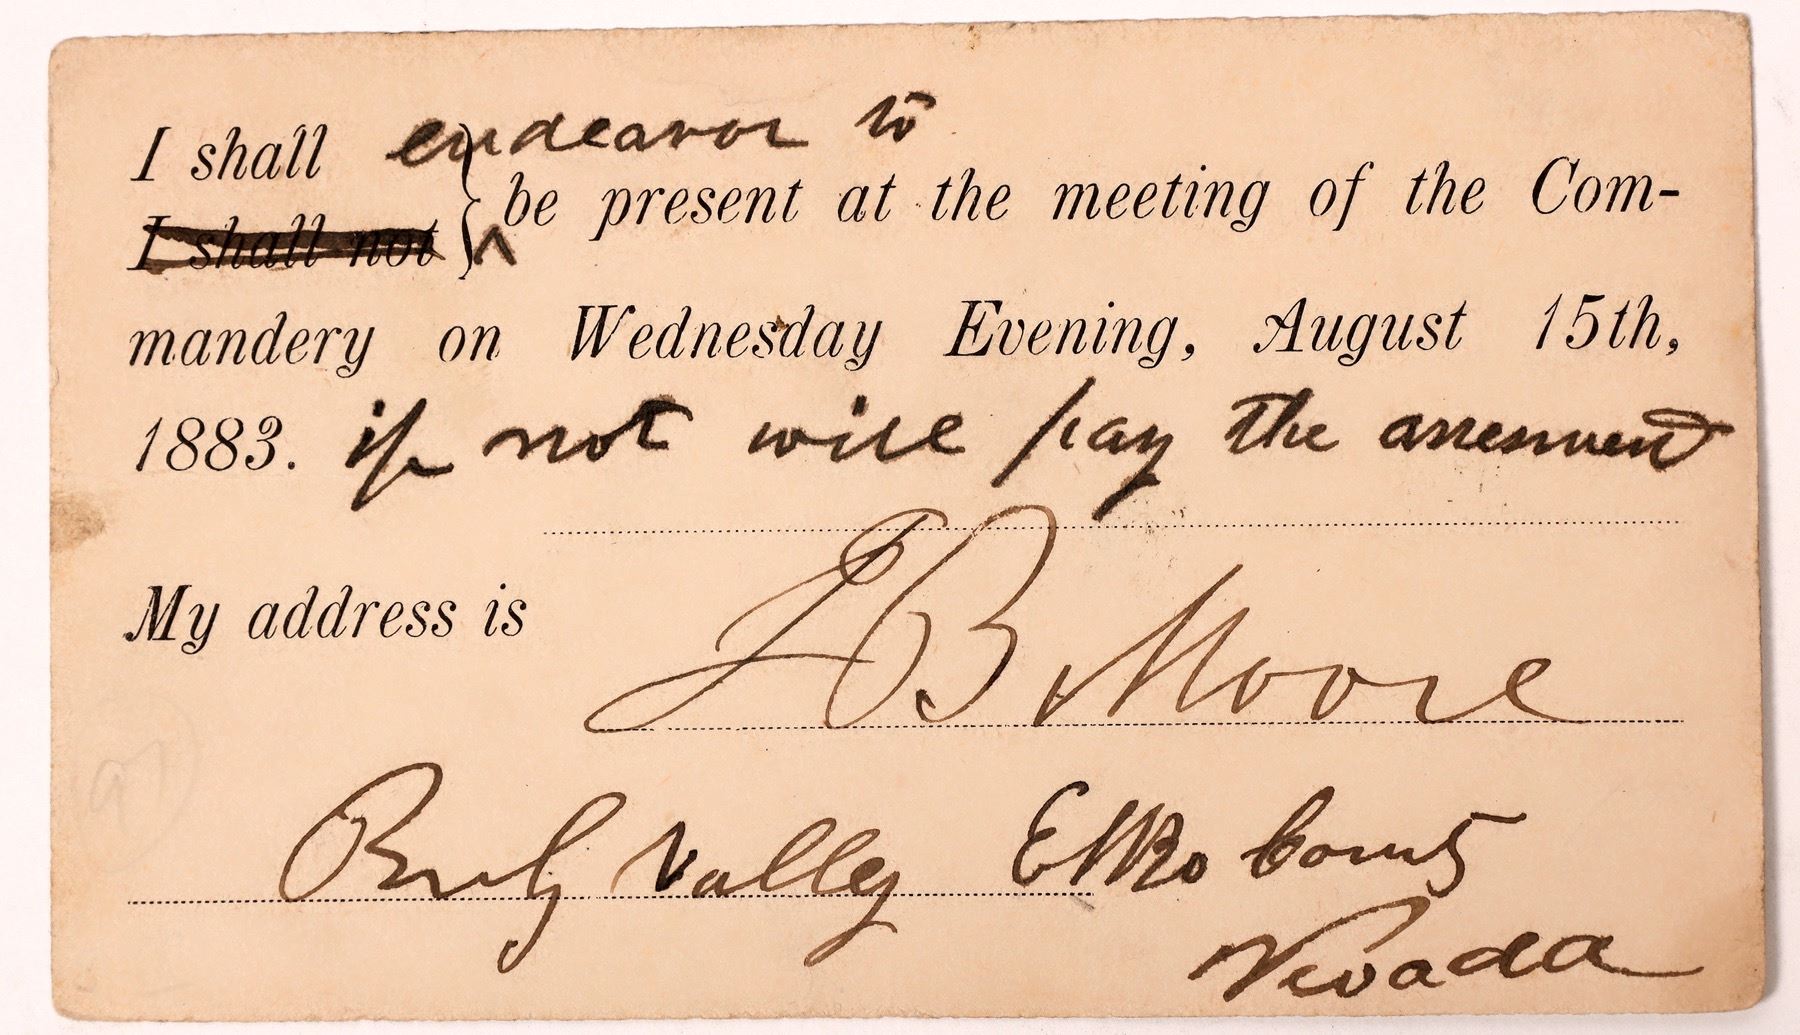 I shall endeavor to
I shall not } ^ be present at the meeting of the Com-
mandery on Wednesday Evening, August 15th,
1883. if not will pay the assessment
My address is J B Moore
Ruby Valley Elko County
Nevada